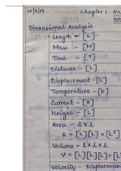 10/6/19
Chapter: 1
Dimensional Analysis
- Length = [L]
- Mass - [M]
- Time - [T]
- Distance - [L]
- Displacement - [L]
- Temperature - [K]
- Current - [A]
- Height - [L]
- Area - L x L
A = [L][L] = [L²]
- Volume = L x L x L
V = [L][L][L] =
Velocity - Displacement